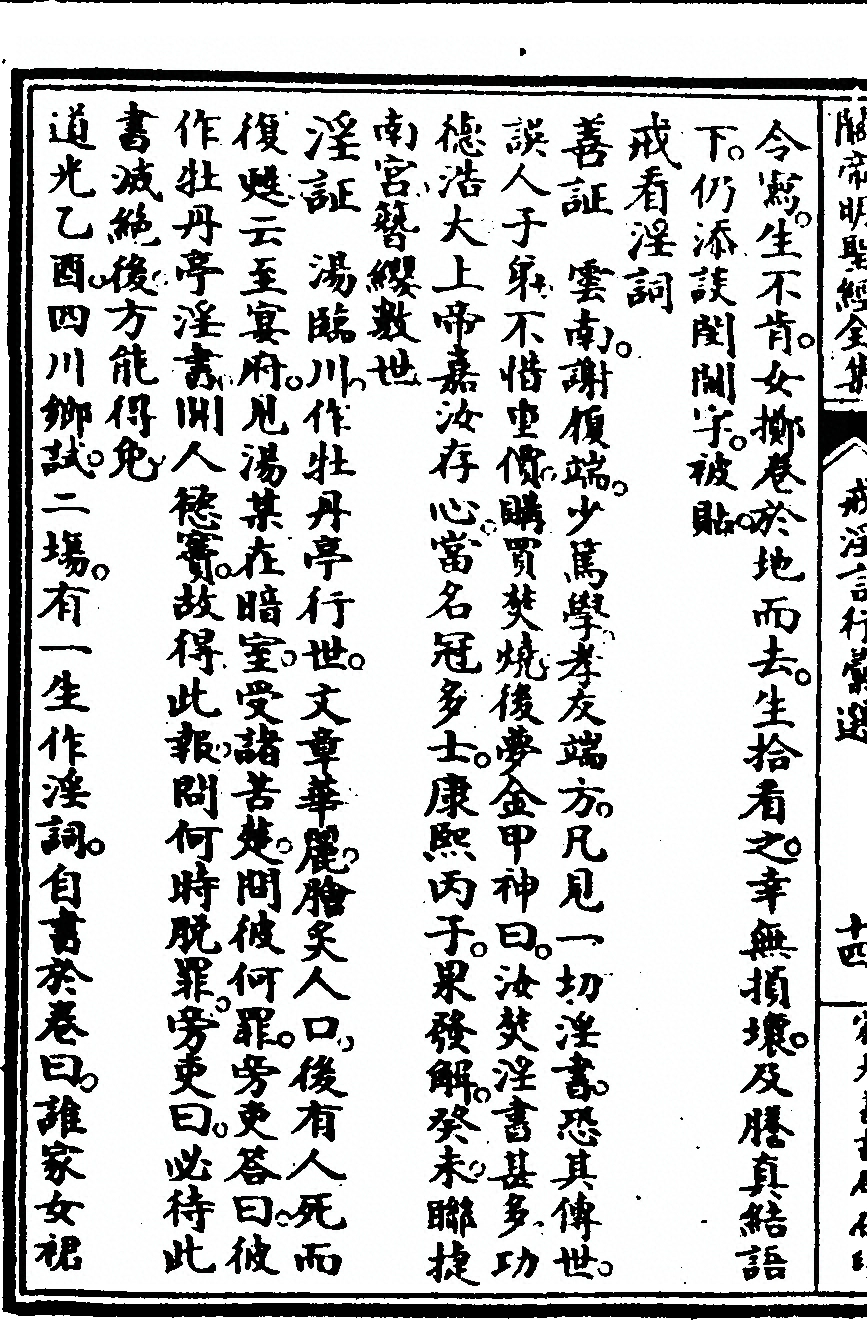 關帝明聖經全集
戒淫詞行藏選
十四
令寫。生不肯。女擲卷於地而去。生拾看之。幸無損壞。及謄真結語
下。仍添談閨閫字。被貼。
戒看淫詞
善証　雲南。謝履端。少篤學。孝友端方。凡見一切淫書。恐其傳世。
誤人子弟。不惜重價。購買焚燒。後夢金甲神曰。汝焚淫書甚多。功
德浩大。上帝嘉汝存心。當名冠多士。康熙丙子。果發解。癸未。聯捷
南宮。簪纓數世
淫証　湯臨川。作牡丹亭行世。文章華麗。膾炙人口。後有人死而
復甦。云至冥府。見湯某在暗室。受諸苦楚。問彼何罪。旁吏答曰。彼
作牡丹亭淫書。開人慾竇。故得此報。問何時脫罪。旁吏曰。必待此
書滅絕。後方能得免
道光乙酉。四川鄉試。二場。有一生作淫詞。自書於卷曰。誰家女裙